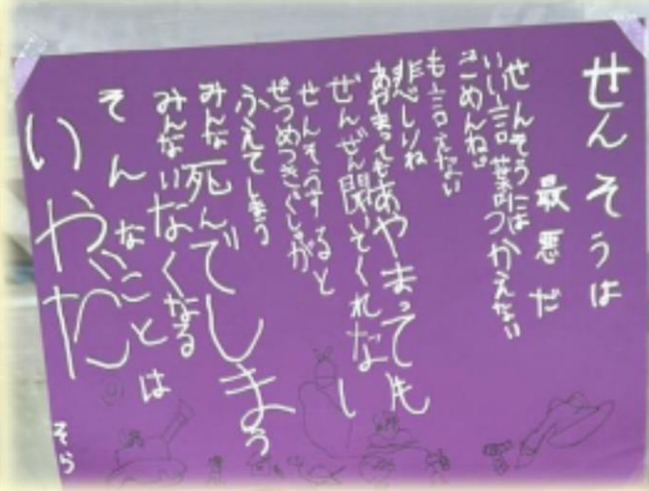 せんそうは
最悪だ
せんそうには
いい言葉がつかえない
ごめんねが
も言えない
悲しいね
あやまってもあやまっても
ぜんぜん聞いてくれない
せんそうすると
ぜつめつきぐしゅが
ふえてしまう
みんな死んでしまう
みんないなくなる
そんなことは
いやだ
そら